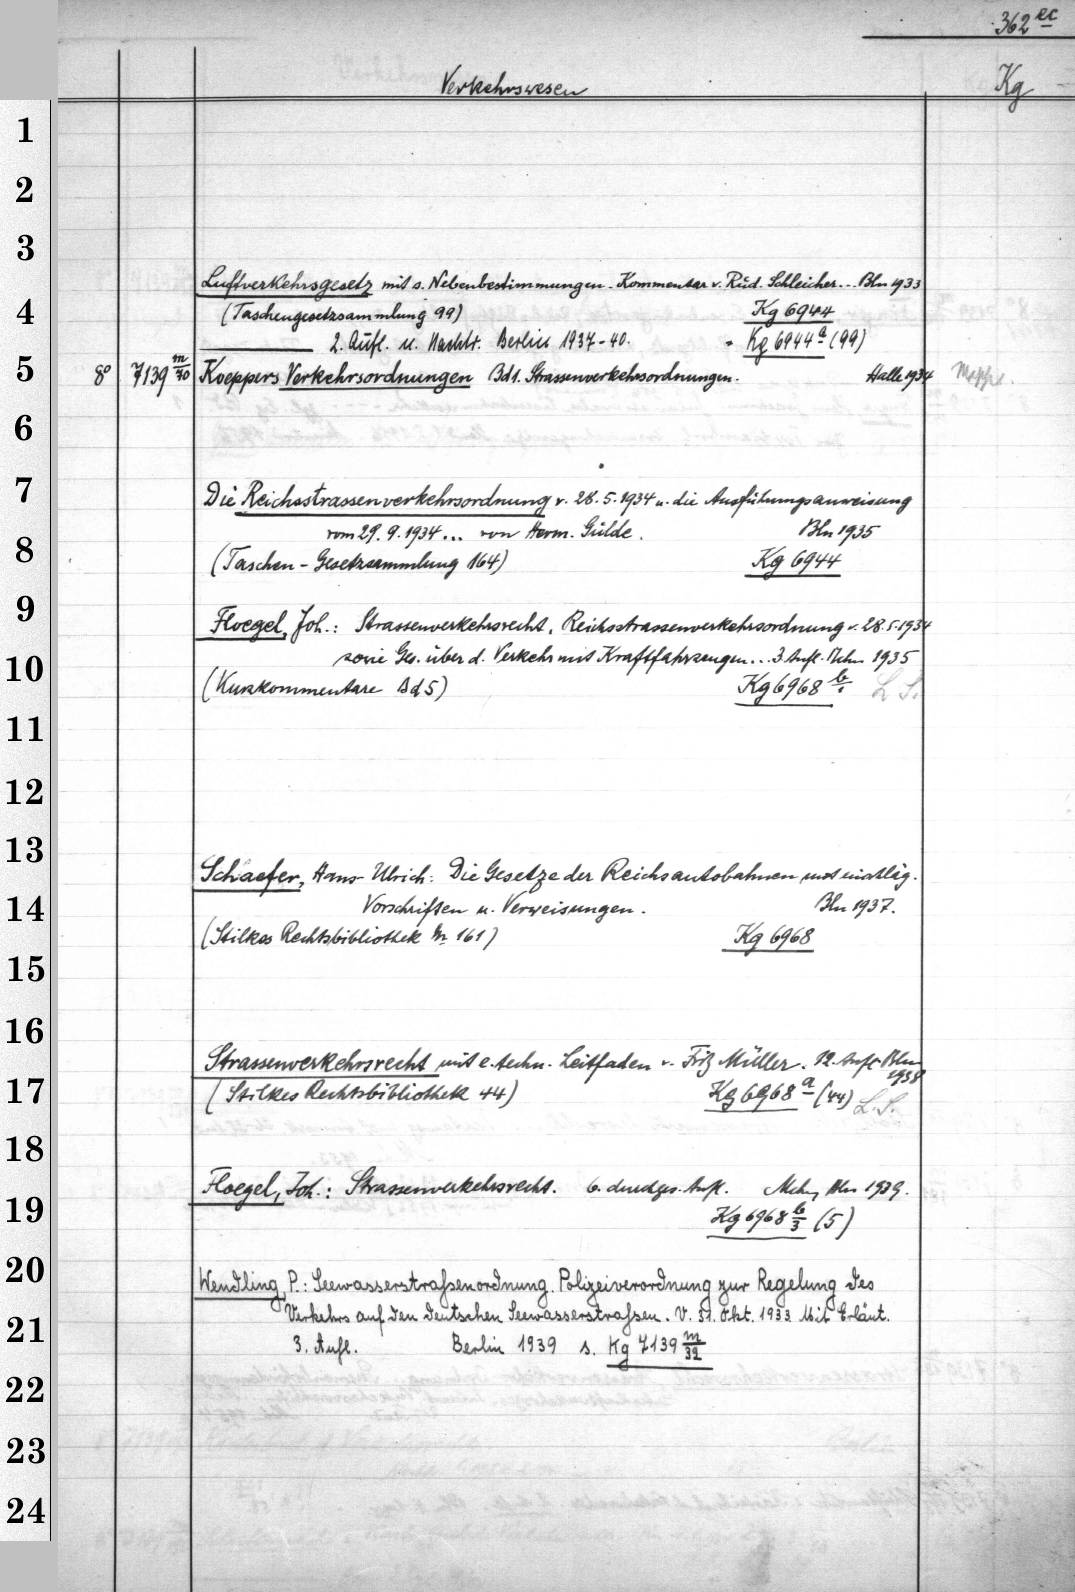 362 ec
Verkehrswesen Kg
1
2
3
Luftverkehrsgesetz mit s. Nebenbestimmungen. Kommentar v. Rud. Schleicher... Bln 1933
4 (Taschengesetzsammlung 99) Kg 6944
2. Aufl. u. Nachtr. Berlin 1937-40. Kg 6944 a (99)
5 8° 7139 m/30 Koeppers Verkehrsordnungen Bd 1. Strassenverkehrsordnungen. Halle 1934 Mappe
6
7 Die Reichsstrassenverkehrsordnung v. 28.5.1934 u. die Ausführungsanweisung
vom 29.9.1934... von Herm. Gülde. Bln 1935
8 (Taschen-Gesetzsammlung 164) Kg 6944
9 Floegel, Joh.: Strassenverkehrsrecht. Reichsstrassenverkehrsordnung v. 28.5.1934
sowie Ges. über d. Verkehr mit Kraftfahrzeugen... 3. Aufl. Mchn 1935
10 (Kurzkommentare Bd 5) Kg 6968 b L.S.
11
12
13
Schaefer, Hans-Ulrich: Die Gesetze der Reichsautobahnen mit einschläg.
14 Vorschriften u. Verweisungen. Bln 1937.
(Stilkes Rechtsbibliothek Nr 161) Kg 6968
15
16
Strassenverkehrsrecht mit e. techn. Leitfaden v. Fritz Müller. 12. Aufl. Bln
1938
17 (Stilkes Rechtsbibliothek 44) Kg 6968 a (44) L.S.
18
Floegel, Joh.: Strassenverkehrsrecht. 6. durchges. Aufl. Mchn, Bln 1939.
19 Kg 6968 b/3 (5)
20
Wendling, P.: Seewasserstraßenordnung. Polizeiverordnung zur Regelung des
Verkehrs auf den deutschen Seewasserstraßen. V. 31. Okt. 1933 Mit Erläut.
21 3. Aufl. Berlin 1939 s. Kg 7139 m/32
22
23
24